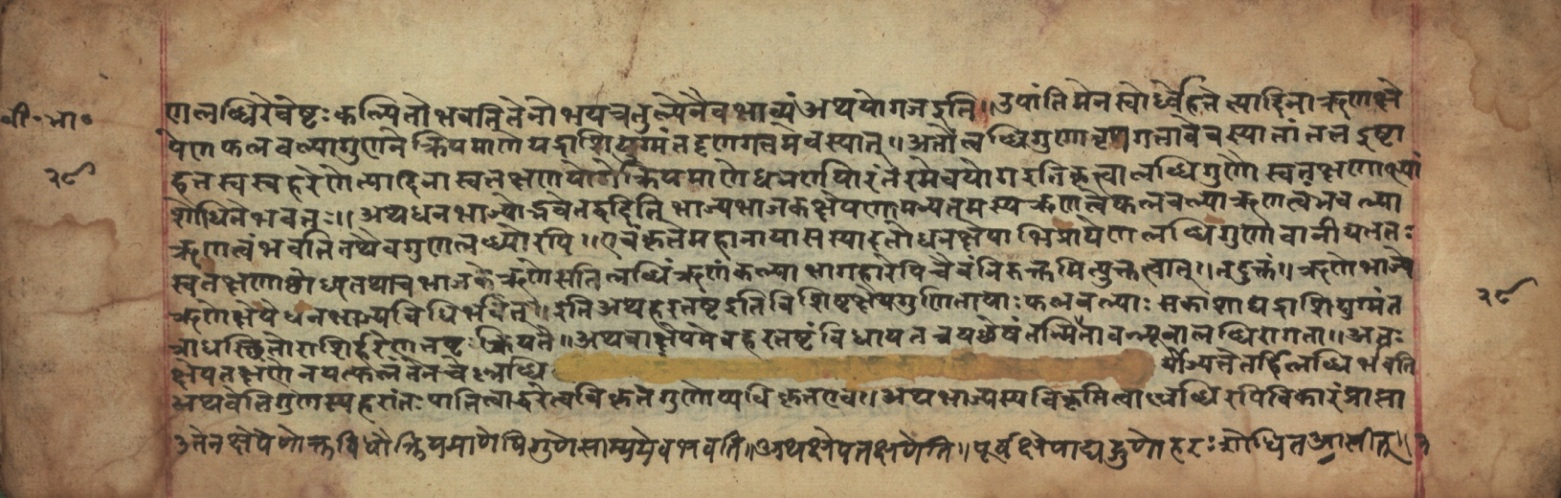 वी० भा०
णलब्धिरेवेष्टः कल्पितो भवति तेनोभयचतुल्येनैव भाव्यं अथ योगज इति॥ उपांतिमेन स्वोर्ध्वेहते त्यादिना ऋणक्षे
पेण फलवल्यागुणने क्रियमाणे यद्राशियुग्मं तदृणगतमेव स्यात्॥ अतो लब्धिगुणो गतावेव स्यातां तल इष्टा
हतस्वस्वहरेणेत्यादिना स्वतक्षणयोगे क्रियमाणे धनर्णयोरंतरमेव योग इति कृत्वा लब्धिगुणौ स्वतक्षणाभ्यां
शोधितौ भवतः॥ अथ धनभाज्योद्भवे तद्वदिति भाज्यभाजकक्षेपणामन्यतमस्य ऋणत्वे फलवल्या ऋणत्वं भवत्या
ऋणत्वं भवति तथैव गुणलब्ध्योरपि॥ एवं कृते महानायासस्यादतो धनक्षेपाभिप्रायेण लब्धिगुणे वानीय ततः
स्वतक्षणाछोध्य तथा च भाजके ऋणे सति लब्धिं ऋणं कल्प्या भागहारेपि चैवं निरुक्तमित्युक्तत्वात्॥ तदुक्तं॥ ऋणे भाज्ये
ऋणे क्षेपे धनभाज्यविधिर्भवेत्॥ इति अथ हरतष्ट इति विशिष्टक्षेपगुणितायाः फलवल्याः सकाशाद्यद्राशियुग्मं त
त्राधस्थितो राशिर्हरेण तष्टः क्रियते॥ अथवा क्षेपमेव हरतष्टं विधाय तत्र यच्छेषं तन्मितावन्यूना लब्धिरागता॥ अतः
क्षेपतक्षणे न यत्फलं तेन चेल्लब्धि र्योज्यते तर्हि लब्धिर्भवति
अथवेति गुणस्य हरांतःपातित्वाद्धरेत्वविकृते गुणोप्यविकृत एव॥ अथ भाज्यस्य विकृतित्वाल्लब्धिरपि विकारं प्राप्ता
उतेन क्षेपेणोक्तविधौ क्रियमाणेपि गुणे साम्यमेव भवति॥ अथ क्षेपतक्षणेति॥ पूर्वं क्षेपाद्यद्गुणो हरः शोधित आसीत्॥
२८
२८